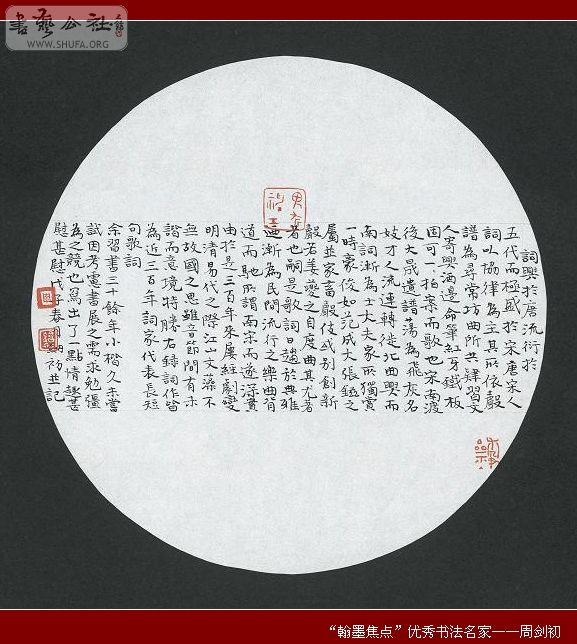 書藝公社
WWW.SHUFA.ORG
詞興於唐流衍於
五代而極盛於宋唐宋人
詞以協律為主其所依聲
譜為尋常坊曲所共肄習文
人寄興酒邊命筆紅牙鐵板
固可一拍案而歌也宋南渡
後大晟遺譜蕩為飛灰名
妓才人流連轉徙北曲興而
南詞漸為士大夫家所獨賞
一時豪俊如范成大張鎡之
屬並家畜聲伎或別創新
聲若姜夔之自度曲其尤著
者也嗣是歌詞日趨於典雅
漸為民間流行之樂曲背
道而馳所謂南宋而遂深實
由於是三百年來屢經劇變
明清易代之際江山文藻不
無故國之思雖音節間有未
諧而意境特勝右錄詞作皆
為近三百年詞家代表長短
句歌詞
余習書三十餘年小楷久未嘗
試因芳廬書展之需求勉彊
為之競也寫出了一點情趣甚
慰甚慰戊子春初並記
“翰墨焦点”优秀书法名家——周剑初